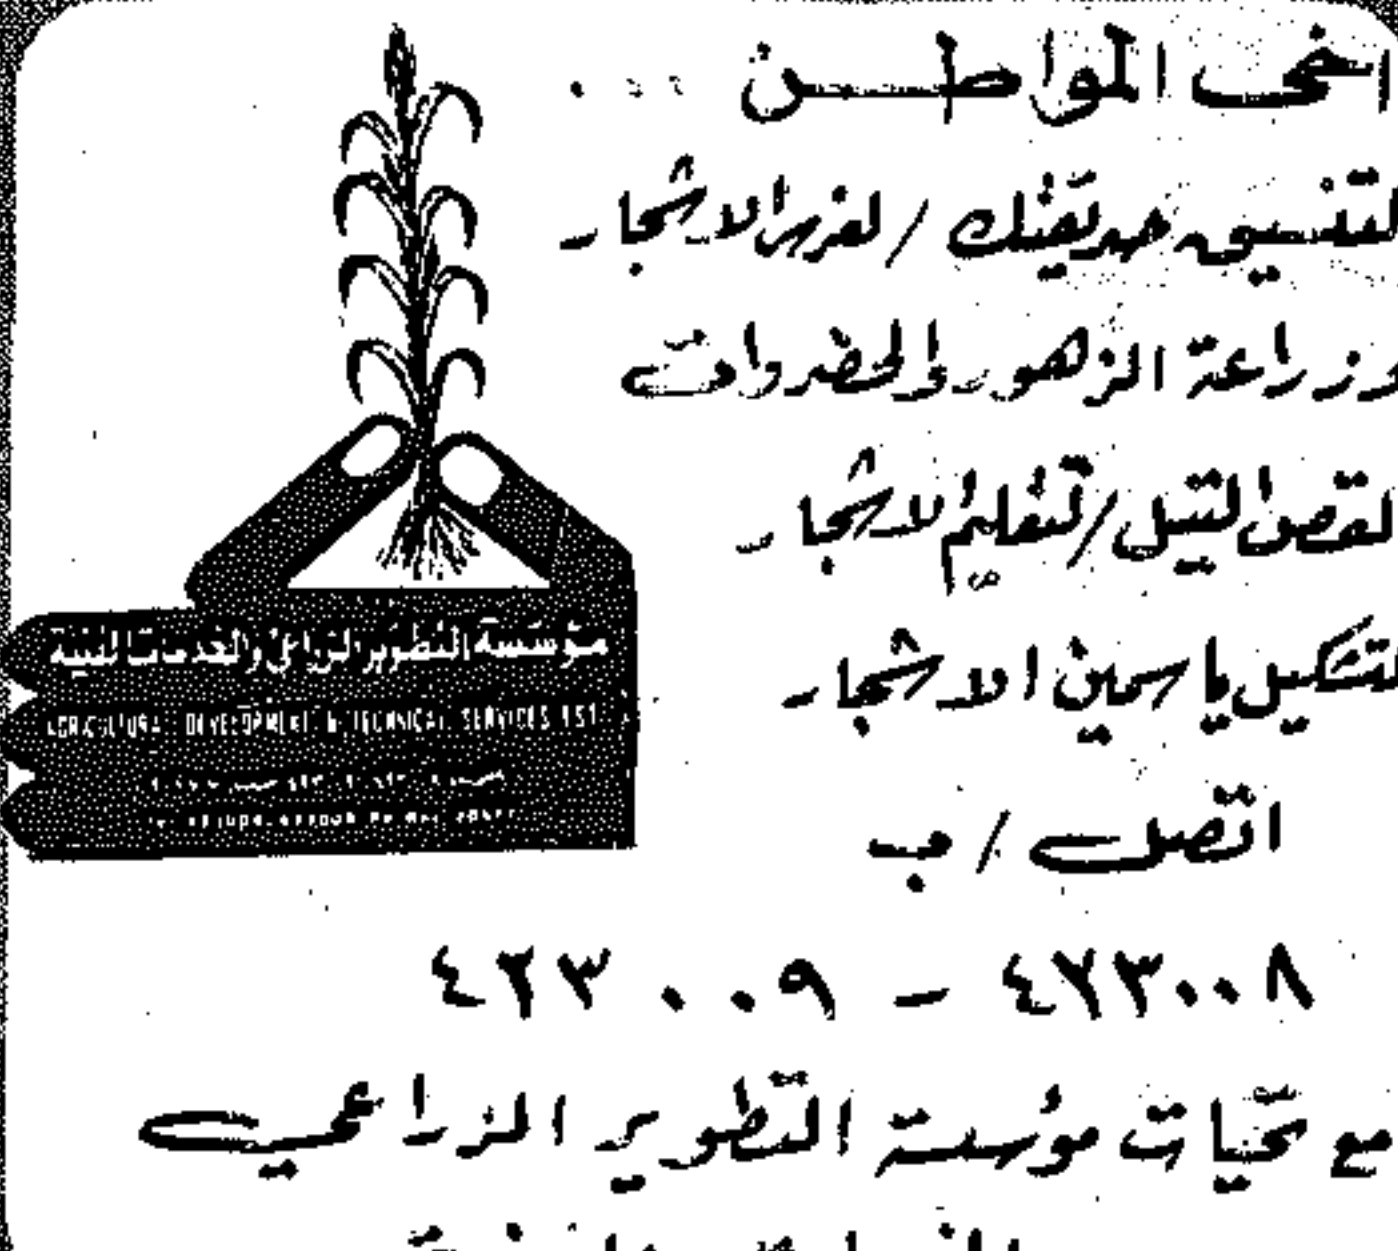 اخي المواطن ...
لتنسيق حديقتك / لغرس الاشجار
وزراعة الزهور والخضروات
لقص الثيل / لتقليم الاشجار
لتشكيل ياسمين الاشجار
اتصل / بـ
٤٢٣٠٠٨ - ٤٢٣٠٠٩
مع تحيات مؤسسة التطوير الزراعي
مؤسسة التطوير الزراعي والخدمات الفنية
AGRICULTURAL DEVELOPMENT & TECHNICAL SERVICES EST.